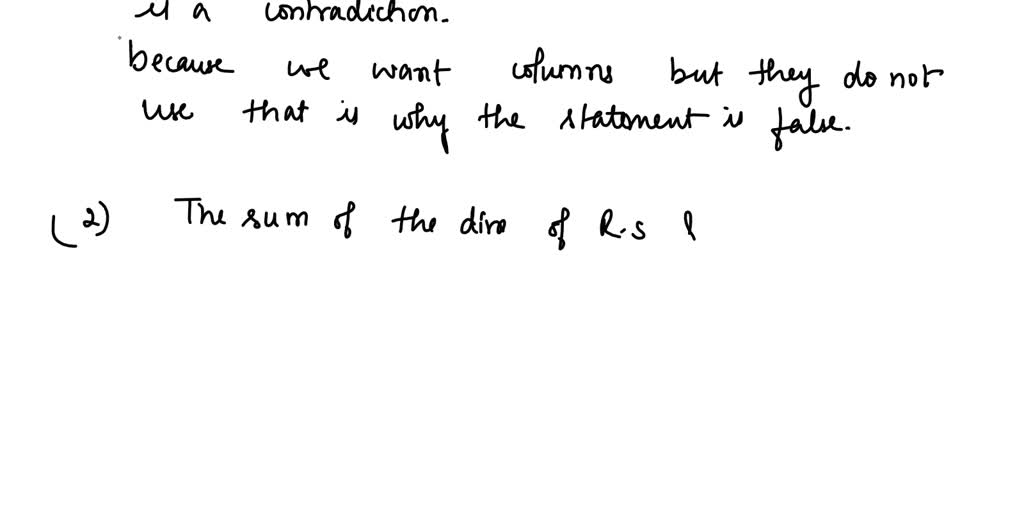 is a contradiction.
because we want columns but they do not
use that is why the statement is false.
(2) The sum of the dim of R.S